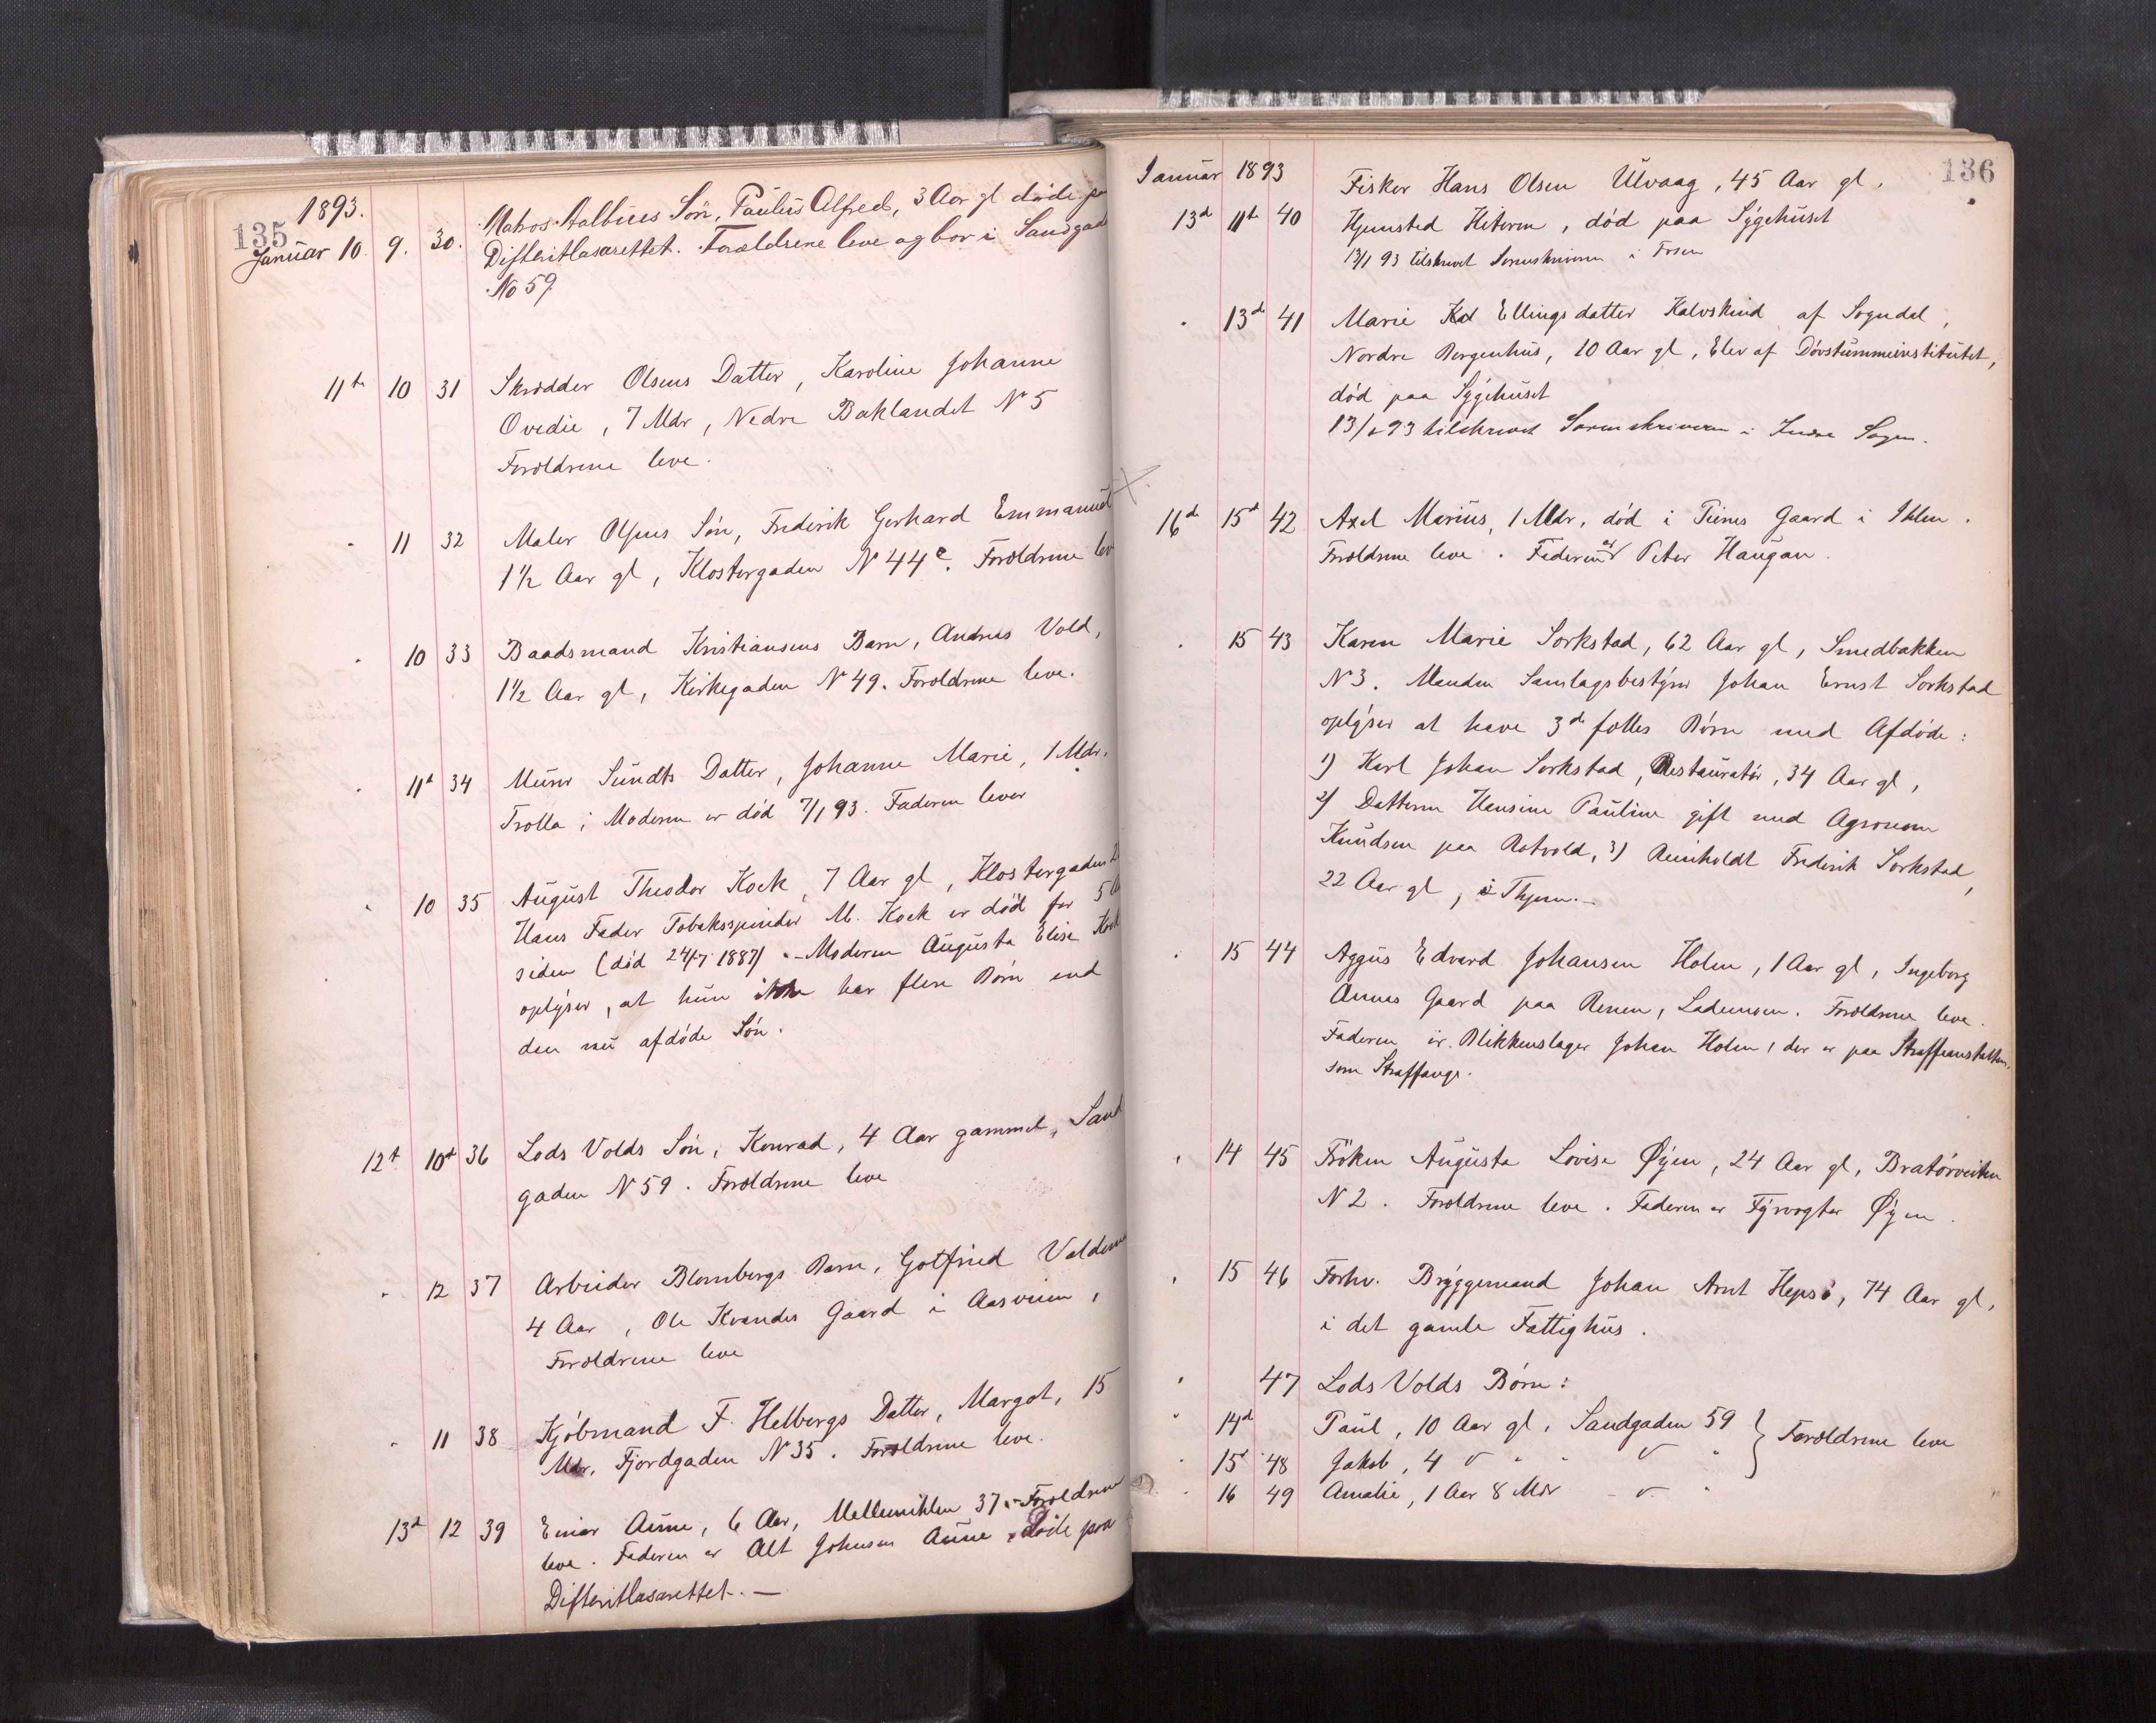 135
1893.
Januar 10. 9. 30. Matros Aalbues Sön, Paulus Alfred, 3 Aar gl døde paa
Difteritlasarettet. Forældrene leve og bor i Sandgad
No 59
11te 10 31 Skrædder Olsens Datter, Karoline Johanne
Ovedie, 7 Mdr, Nedre Baklandet No 5
Forældrene leve.
" 11 32 Maler Olsens Sön, Frederik Gerhard Emmanuel
1½ Aar gl, Klostergaden No 44 e. Forældrene lev
" 10 33 Baadsmand Kristiansens Barn, Andreas Vold,
1½ Aar gl, Kirkegaden No 49. Forældrene leve.
" 11t 34 Murer Sundts Datter, Johanne Marie, 1 Mdr.
Trolla; Moderen er død 7/1 93. Faderen lever
" 10 35 August Theodor Kock, 7 Aar gl, Klostergaden
Hans Fader Tobaksspinder M. Kock er død for 5
siden (død 24/7 1887) - Moderen Augusta Elise
oplyser, at hun ikke har flere Børn end
den nu afdøde Sön.
12t 10t 36 Lods Volds Sön, Konrad, 4 Aar gammel, Sand
gaden No 59. Forældrene leve
" 12 37 Arbeider Blombergs Barn, Gotfried Valdem
4 Aar, Ole Kvandes Gaard i Aasveien,
Forældrene leve
" 11 38 Kjöbmand F. Helbergs Datter, Margot, 15
Mdr, Fjordgaden No 35. Forældrene leve.
13d 12 39 Einar Aune, 6 Aar, Mellemiklen 37. - Forældrene
leve. Faderen er Alt Johnsen Aune, døde paa
Difteritlasarettet. -
136
Januar 1893
13d 11te 40 Fisker Hans Olsen Ulvaag, 45 Aar gl.
Hjemsted Hiteren, død paa Sygehuset
13/1 93 tilskrevet Sorenskriveren i Fosen
" 13d 41 Marie Kal Ellingsdatter Kalvskind af Sogndal,
Nordre Bergenhus, 20 Aar gl, Elev af Døvstummeinstitutet,
død paa Sygehuset
13/1 93 tilskrevet Sorenskriveren i Indre Sogn.
16d 15d 42 Axel Marius, 1 Mdr, død i Gaard i Ihlen.
Forældrene leve. Faderen er Peter Haugan.
" 15 43 Karen Marie Sorkstad, 62 Aar gl, Smedbakken
No 3. Manden Samlagsbestyrer Johan Ernst Sorkstad
oplyser at have 3de fælles Børn med Afdøde:
1) Karl Johan Sorkstad, Restauratør, 34 Aar gl,
2) Datteren Hansine Pauline gift med Agronom
Knudsen paa Rotvold, 3) Reinholdt Frederik Sorkstad,
22 Aar gl, i Thjem. -
" 15 44 Aggus Edvard Johansen Holm, 1 Aar gl, Ingeborg
Aunes Gaard paa Renen, Lademoen. Forældrene leve.
Faderen er Blikkenslager Johan Holm, der er paa Straffeanstalten,
som Straffange.
" 14 45 Fröken Augusta Lovise Øyen, 24 Aar gl, Bratørveiten
No 2. Forældrene leve. Faderen er Fyrvogter Øyen.
" 15 46 Forhv. Bryggemand Johan Arnt Hepsø, 74 Aar gl,
i det gamle Fattighus.
" 47 Lods Volds Børn:
" 14d Paul, 10 Aar gl, Sandgaden 59 } Forældrene leve
" 15d 48 Jakob, 4 " " " "
" 16 49 Amalie, 1 Aar 8 Mdr - " "